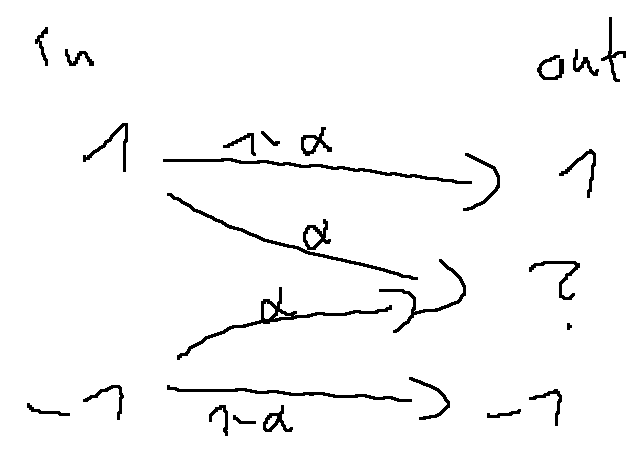 in out
1 1-α 1
α ?
α
-1 1-α -1